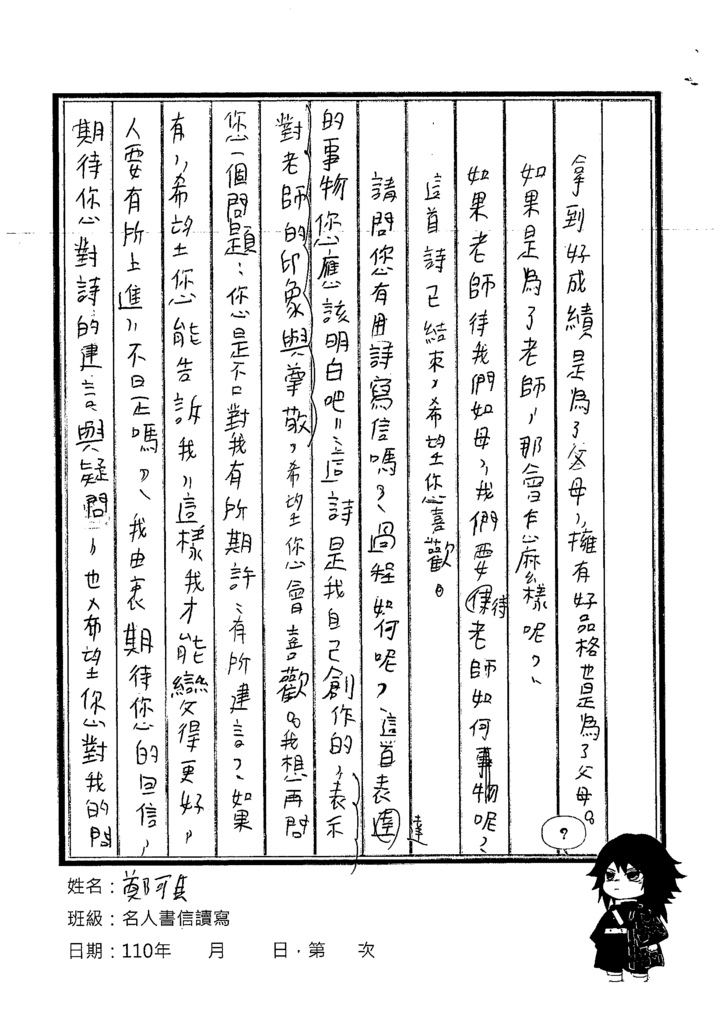 拿到好成績是為了父母，擁有好品格也是為了父母。
如果是為了老師，那會怎麼樣呢？
如果老師待我們如母，我們要待老師如何事物呢？
這首詩已結束，希望您喜歡。
請問您有用詩寫信嗎？過程如何呢？這首表達
達
的事物您應該明白吧！這詩是我自己創作的，表示
對老師的印象與尊敬，希望您會喜歡。我想再問
您一個問題：您是否對我有所期許？有所建言？如果
有，希望您能告訴我，這樣我才能變得更好，
人要有所上進，不是嗎？我由衷期待您的回信，
期待您對詩的建言與疑問，也希望您對我的問
？
姓名：鄭可
班級：名人書信讀寫
日期：110年 月 日，第 次